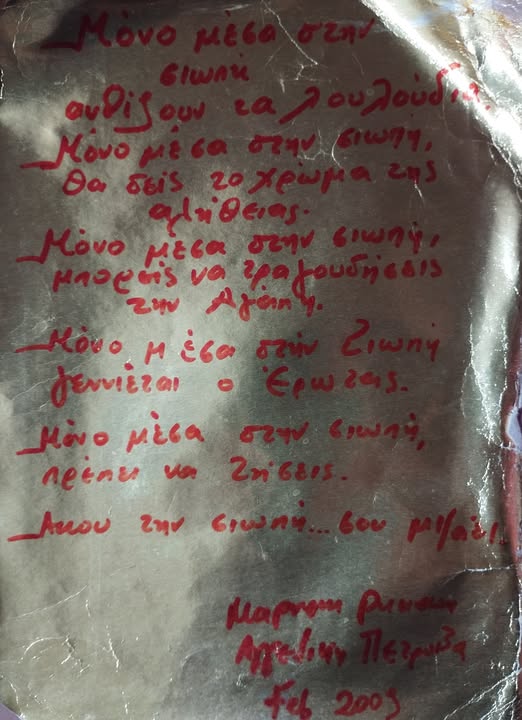 — Μόνο μέσα στην
σιωπή
ανθίζουν τα λουλούδια.
— Μόνο μέσα στην σιωπή,
θα δεις το χρώμα της
αλήθειας.
— Μόνο μέσα στην σιωπή,
μπορείς να τραγουδήσεις
την Αγάπη.
— Μόνο μέσα στην Σιωπή
γεννιέται ο Έρωτας.
— Μόνο μέσα στην σιωπή,
πρέπει να Ζήσεις.
— Ακου την σιωπή... σου μιλάει.
Αγγελική
Feb 2009